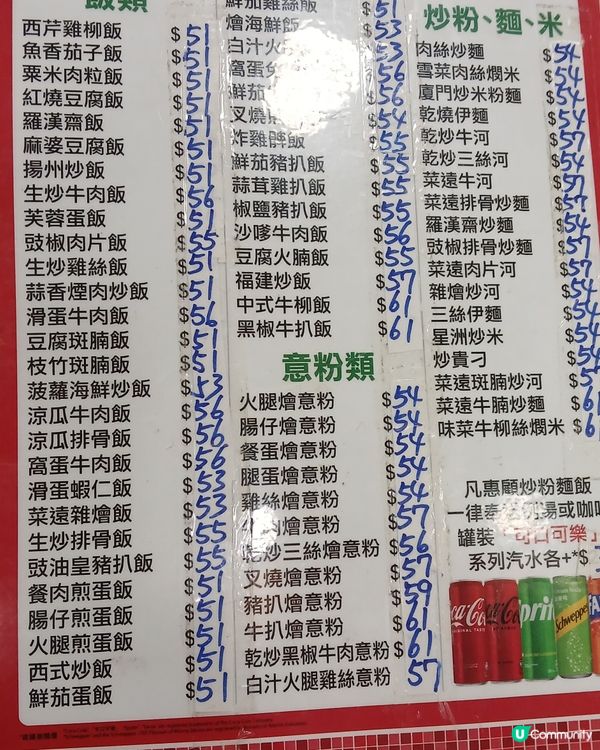 飯類
西芹雞柳飯 $51
魚香茄子飯 $51
粟米肉粒飯 $51
紅燒豆腐飯 $51
羅漢齋飯 $51
麻婆豆腐飯 $51
揚州炒飯 $51
生炒牛肉飯 $56
芙蓉蛋飯 $51
豉椒肉片飯 $55
生炒雞絲飯 $51
蒜香煙肉炒飯 $51
滑蛋牛肉飯 $56
豆腐斑腩飯 $51
枝竹斑腩飯 $51
菠蘿海鮮炒飯 $53
涼瓜牛肉飯 $56
涼瓜排骨飯 $56
窩蛋牛肉飯 $56
滑蛋蝦仁飯 $53
菜遠雜燴飯 $53
生炒排骨飯 $55
豉油皇豬扒飯 $55
餐肉煎蛋飯 $51
腸仔煎蛋飯 $51
火腿煎蛋飯 $51
西式炒飯 $51
鮮茄蛋飯 $51
鮮茄雞絲飯 $51
燴海鮮飯 $53
白汁火 $53
窩蛋 $56
鮮茄 $56
叉燒 $54
炸雞髀飯 $55
鮮茄豬扒飯 $55
蒜茸雞扒飯 $55
椒鹽豬扒飯 $55
沙嗲牛肉飯 $56
豆腐火腩飯 $55
福建炒飯 $57
中式牛柳飯 $61
黑椒牛扒飯 $61
意粉類
火腿燴意粉 $54
腸仔燴意粉 $54
餐蛋燴意粉 $54
腿蛋燴意粉 $54
雞絲燴意粉 $54
牛肉燴意粉 $57
乾炒三絲燴意粉 $56
叉燒燴意粉 $57
豬扒燴意粉 $59
牛扒燴意粉 $61
乾炒黑椒牛肉意粉 $61
白汁火腿雞絲意粉 57
炒粉、麵、米
肉絲炒麵 $54
雪菜肉絲燜米 $54
廈門炒米粉麵 $54
乾燒伊麵 $54
乾炒牛河 $57
乾炒三絲河 $54
菜遠牛河 $57
菜遠排骨炒麵 $57
羅漢齋炒麵 $54
豉椒排骨炒麵 $57
菜遠肉片河 $57
雜燴炒河 $54
三絲伊麵 $54
星洲炒米 $54
炒貴刁 $54
菜遠斑腩炒河 $5
菜遠牛腩炒麵 $6
味菜牛柳絲燜米 $6
凡惠顧炒粉麵飯
一律奉送例湯或咖啡
罐裝「可口可樂」
系列汽水各+*$
Schweppes
U Community